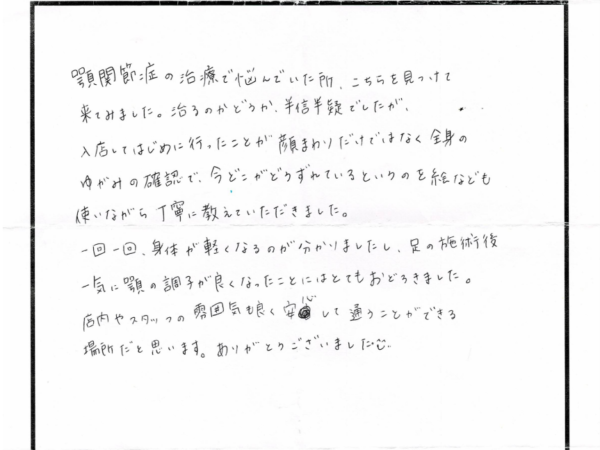 顎関節症の治療で悩んでいた所、こちらを見つけて
来てみました。治るのかどうか、半信半疑でしたが、
入店してはじめに行ったことが顔まわりだけではなく全身の
ゆがみの確認で、今どこがどうずれているというのを絵なども
使いながら丁寧に教えていただきました。
一回一回、身体が軽くなるのが分かりましたし、足の施術後
一気に顎の調子が良くなったことにはとてもおどろきました。
店内やスタッフの雰囲気も良く安心して通うことができる
場所だと思います。ありがとうございました